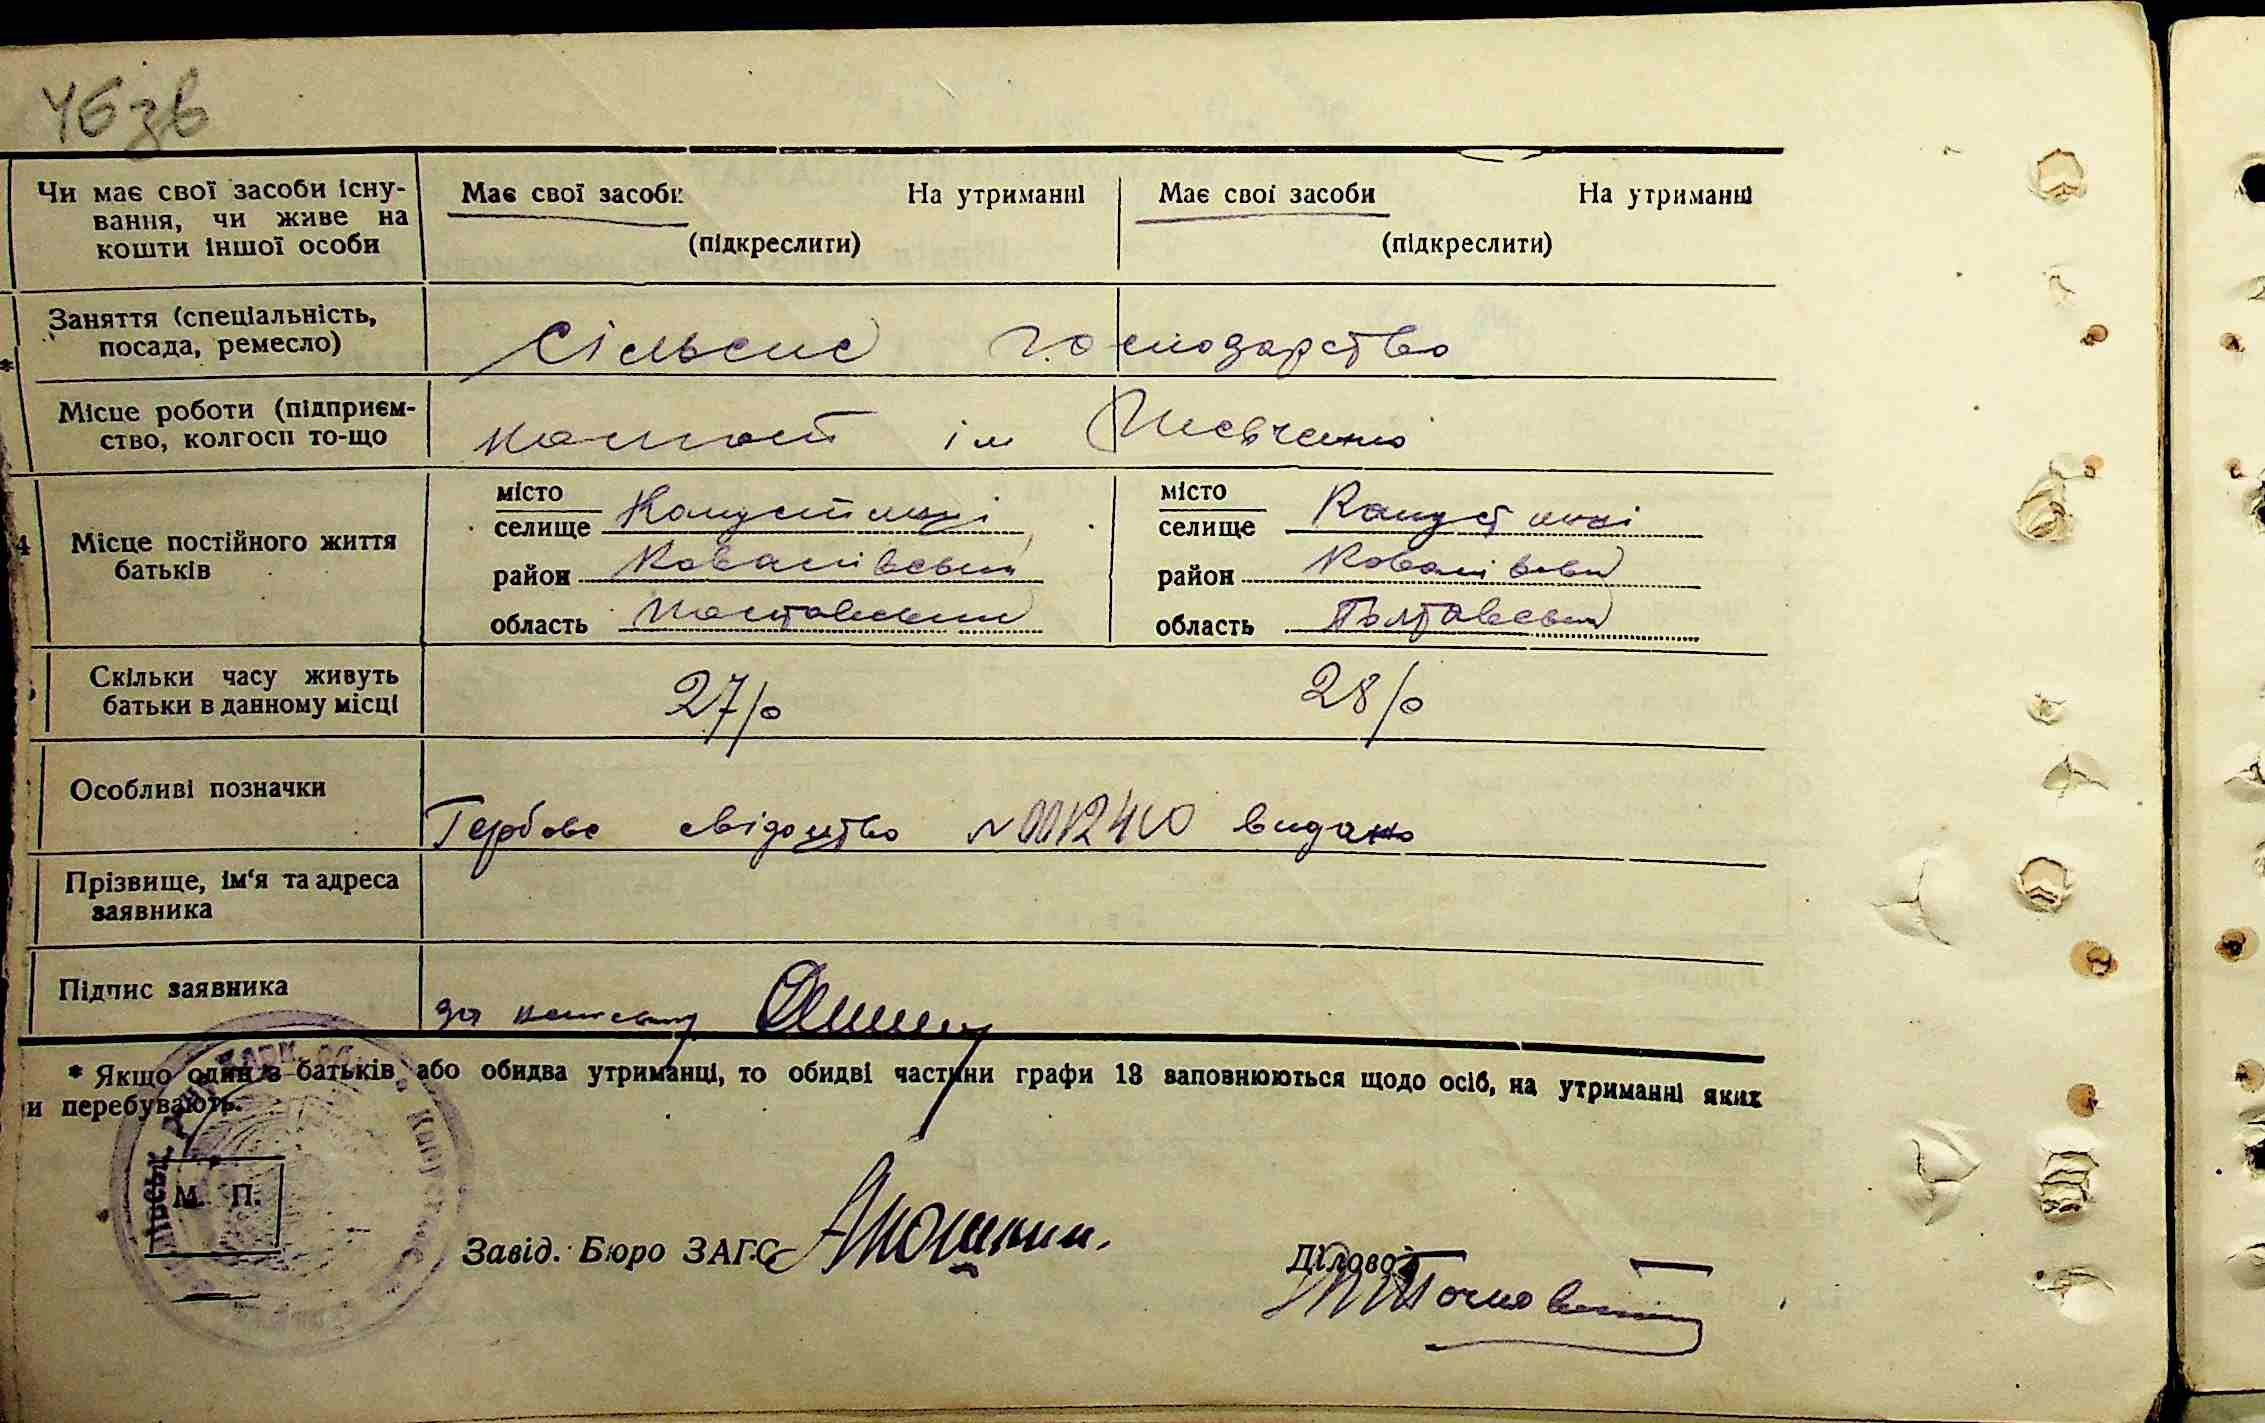 46 зв
Чи має свої засоби існу- Має свої засоби На утриманні Має свої засоби На утриманні
вання, чи живе на
кошти іншої особи (підкреслити) (підкреслити)
Заняття (спеціальність,
посада, ремесло) Сільське господарство
Місце роботи (підприєм-
ство, колгосп то-що ім Шевченко
місто місто
селище Капустинці селище Капустинці
Місце постійного життя
батьків
район Ковалівський район Ковалівський
область Полтавський область Полтавський
Скільки часу живуть
батьки в данному місці 27/0 28/0
Особливі позначки
Гербове свідоцтво видано
Прізвище, ім'я та адреса
заявника
Підпис заявника
за
* Якщо один з батьків або обидва утриманці, то обидві частини графи 13 заповнюються щодо осіб, на утриманні яких
и перебувають.
М. П.
Завід. Бюро ЗАГС
Діловод